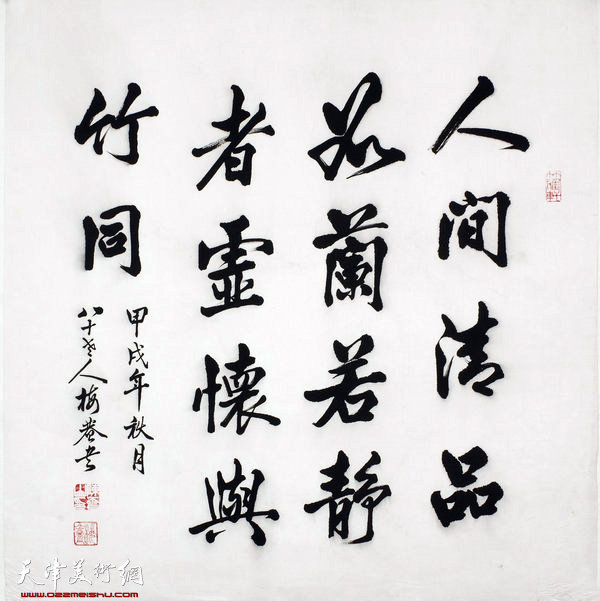 人間清品
如蘭若靜
者虛懷與
竹同
甲戌年秋月
八十老人梅菴书
天津美術網
www.022meishu.com